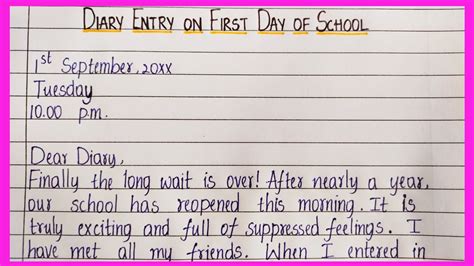 DIARY ENTRY ON FIRST DAY OF SCHOOL
1st September, 20xx
Tuesday
10.00 p.m.
Dear Diary,
Finally the long wait is over! After nearly a year,
our school has reopened this morning. It is
truly exciting and full of suppressed feelings. I
have met all my friends. When I entered in